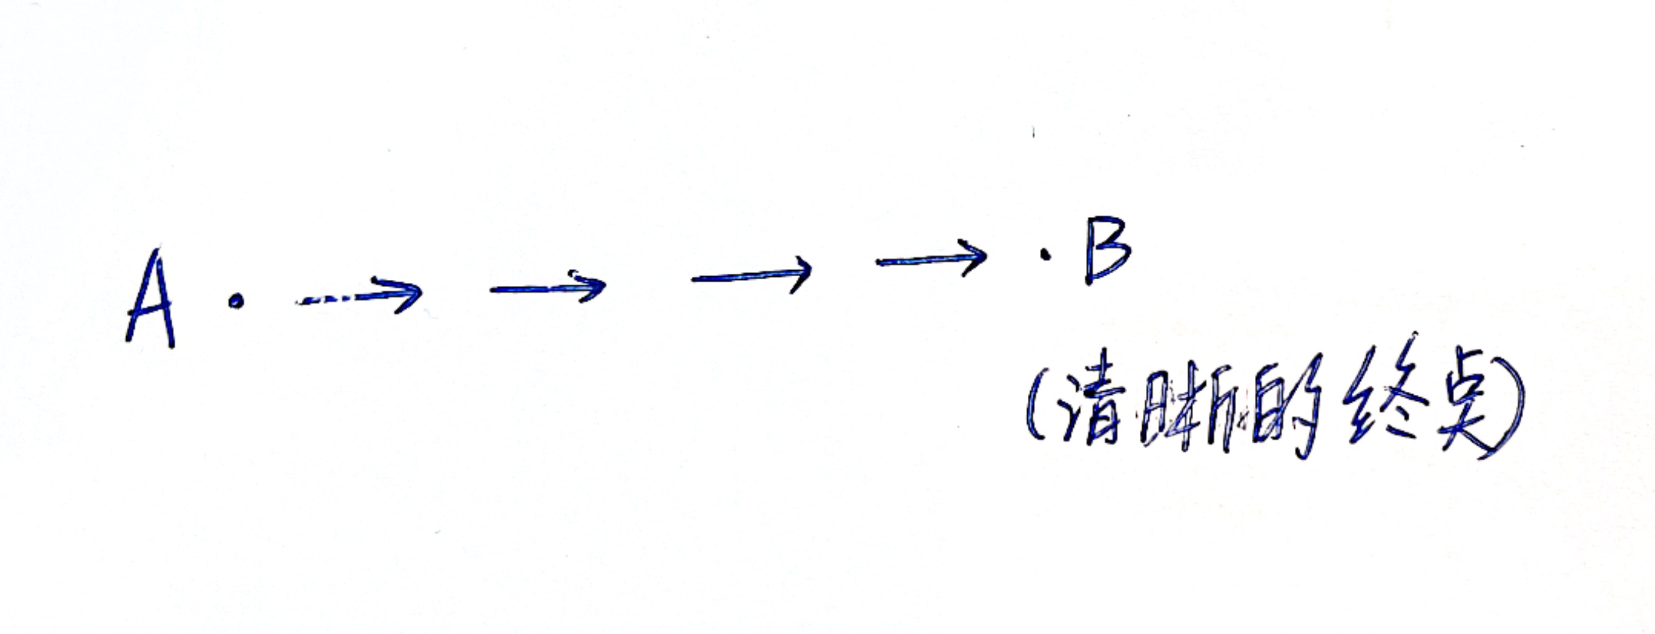 A · → → → → · B
(清晰的终点)